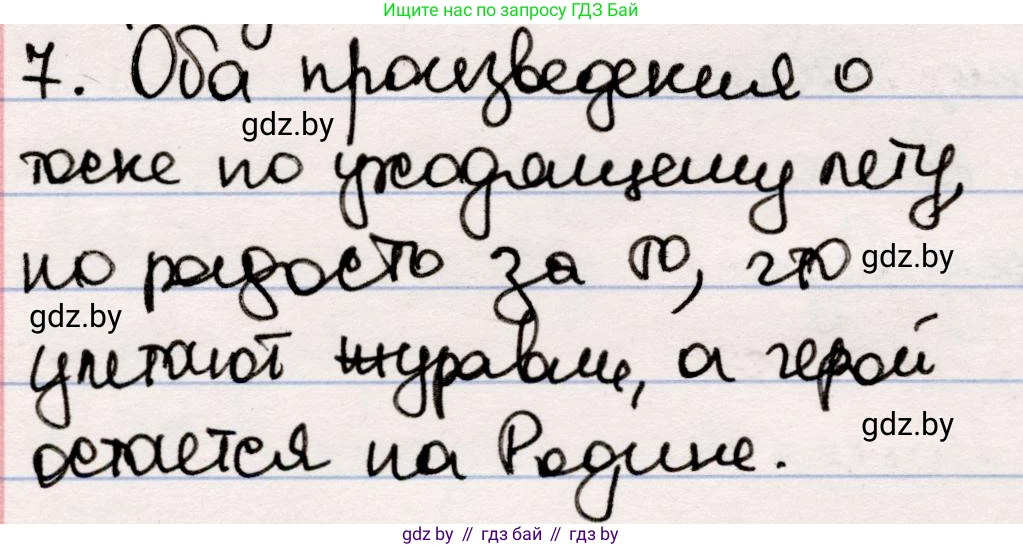 Ищите нас по запросу ГДЗ Бай
7. Оба произведения о
gdz.by
тоске по уходящему лету,
но радость за то, что
gdz.by
gdz.by
улетают журавли, а герой
gdz.by
остается на Родине.
gdz by // гдз бай // gdz by